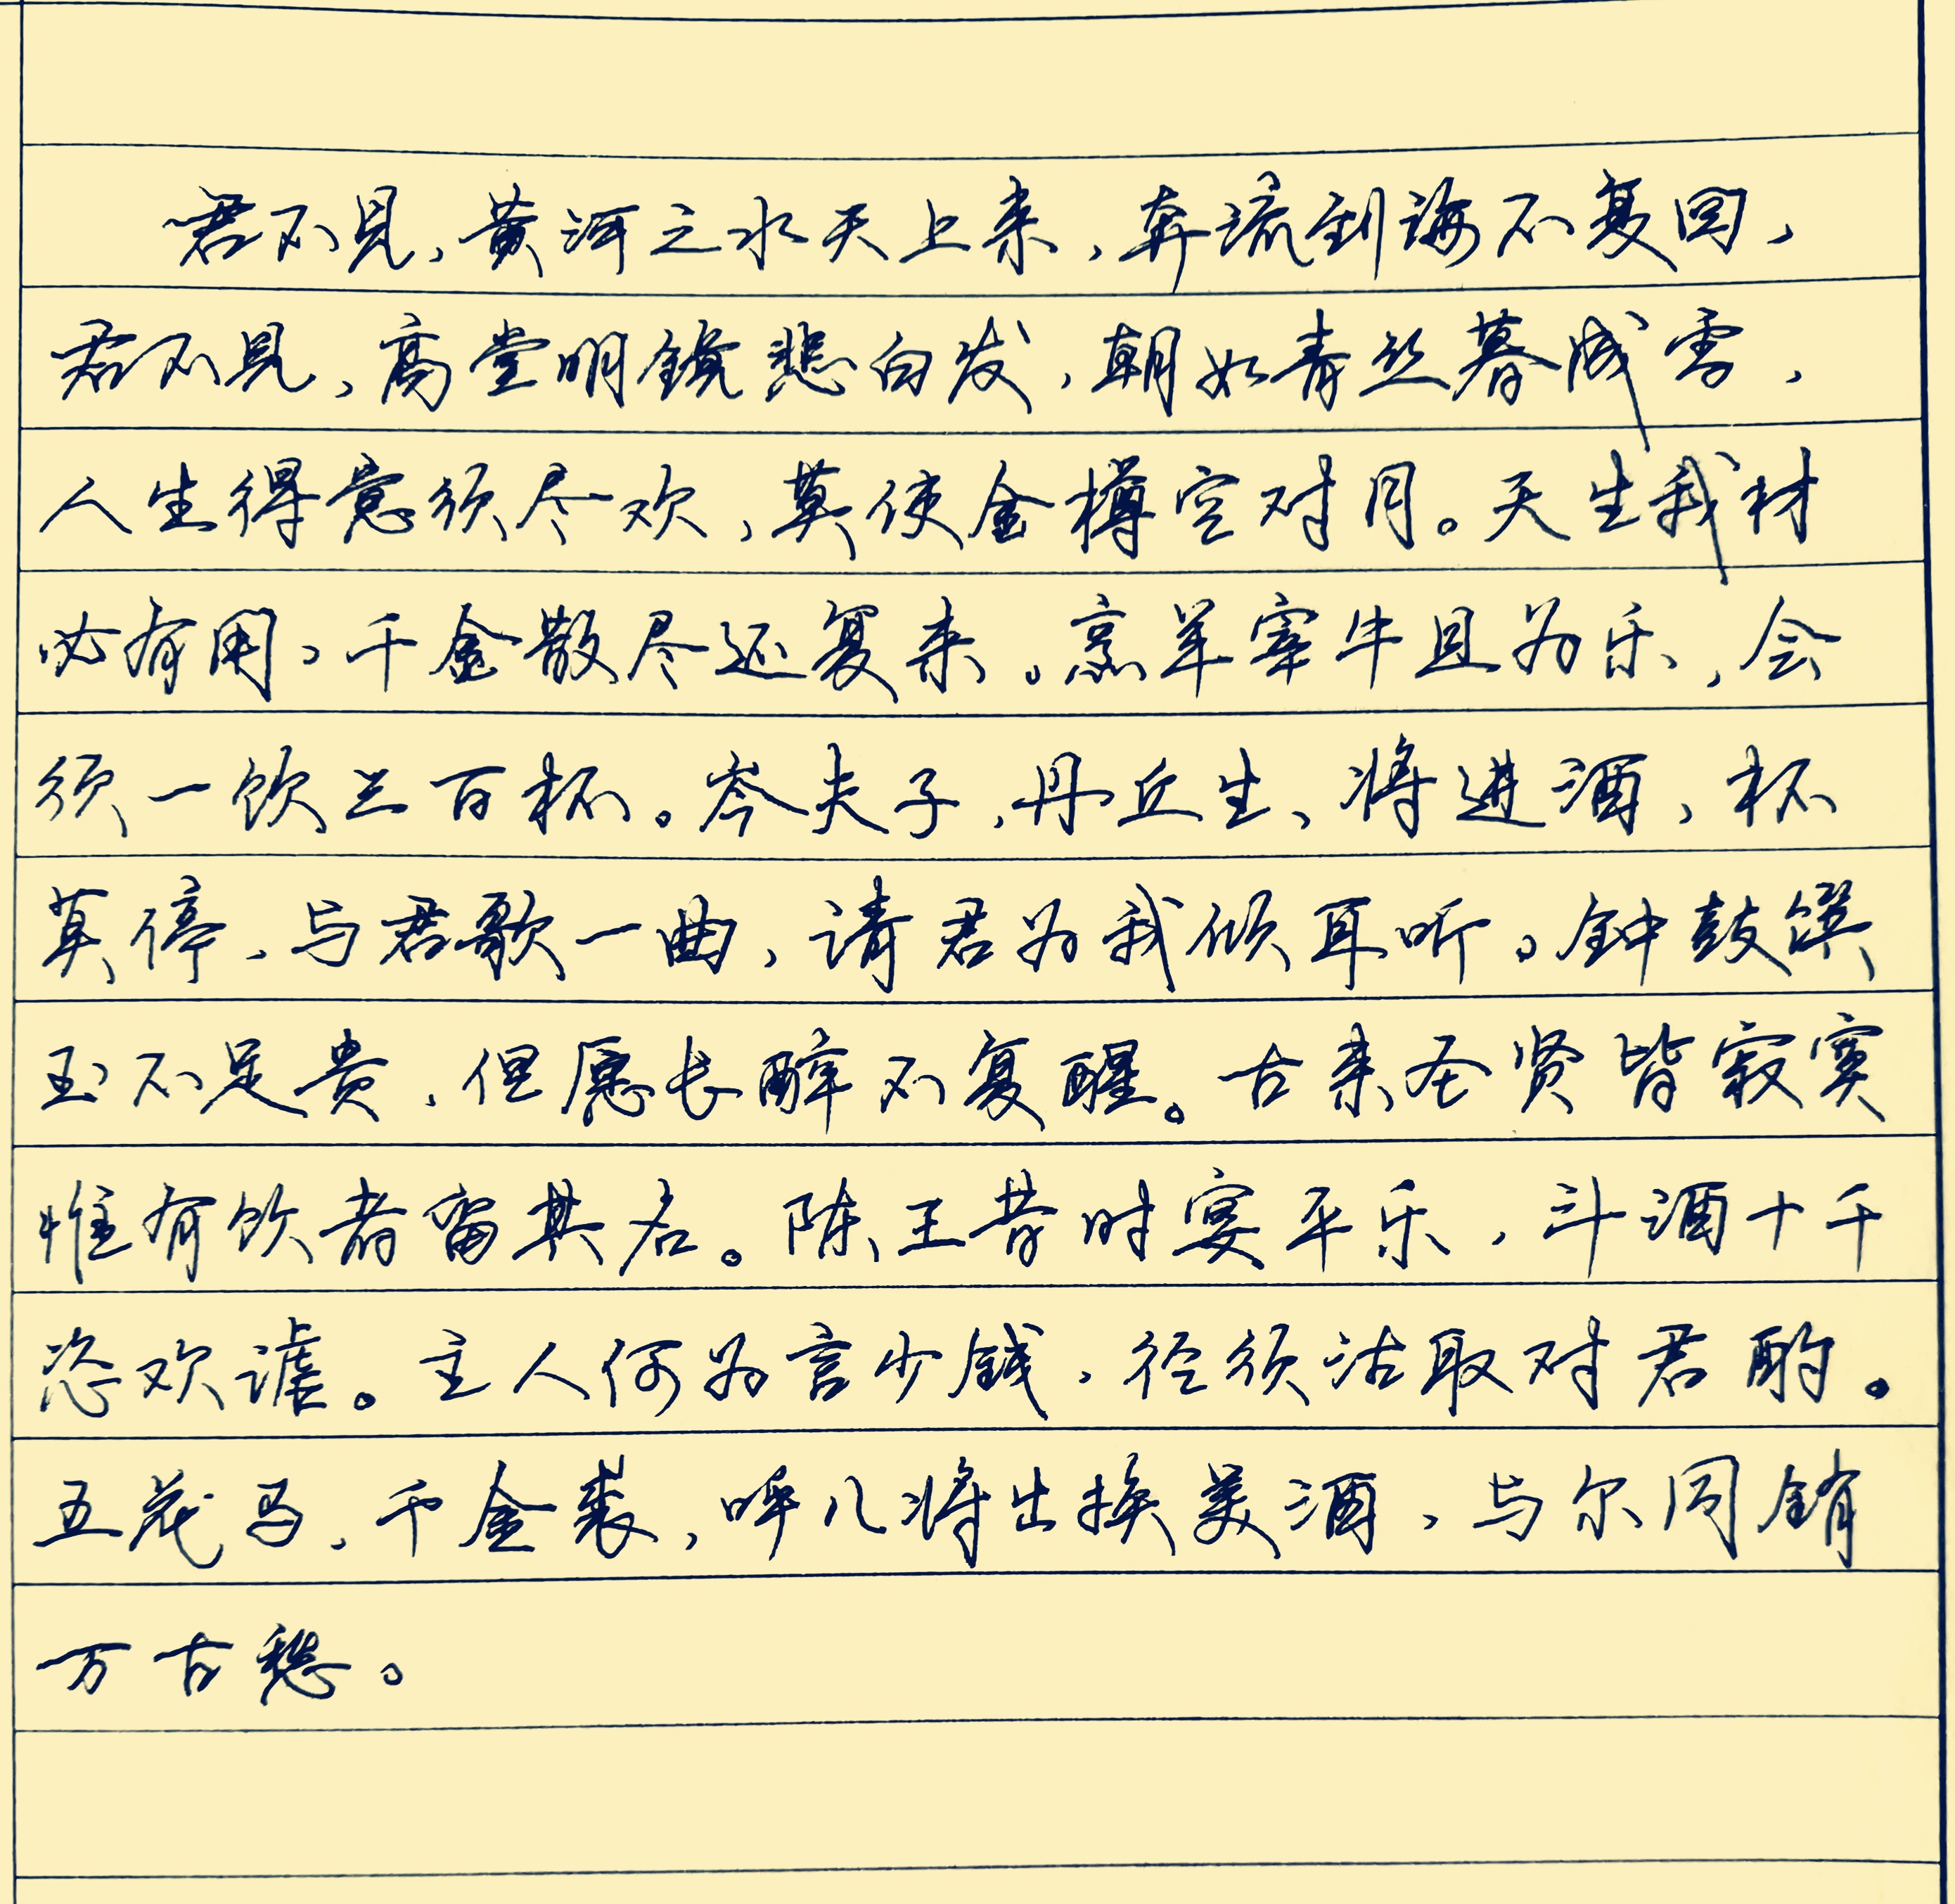 君不见,黄河之水天上来,奔流到海不复回,
君不见,高堂明镜悲白发,朝如青丝暮成雪,
人生得意须尽欢,莫使金樽空对月。天生我材
必有用,千金散尽还复来。烹羊宰牛且为乐,会
须一饮三百杯。岑夫子,丹丘生,将进酒,杯
莫停,与君歌一曲,请君为我倾耳听。钟鼓馔
玉不足贵,但愿长醉不复醒。古来圣贤皆寂寞
惟有饮者留其名。陈王昔时宴平乐,斗酒十千
恣欢谑。主人何为言少钱,径须沽取对君酌。
五花马,千金裘,呼儿将出换美酒,与尔同销
万古愁。